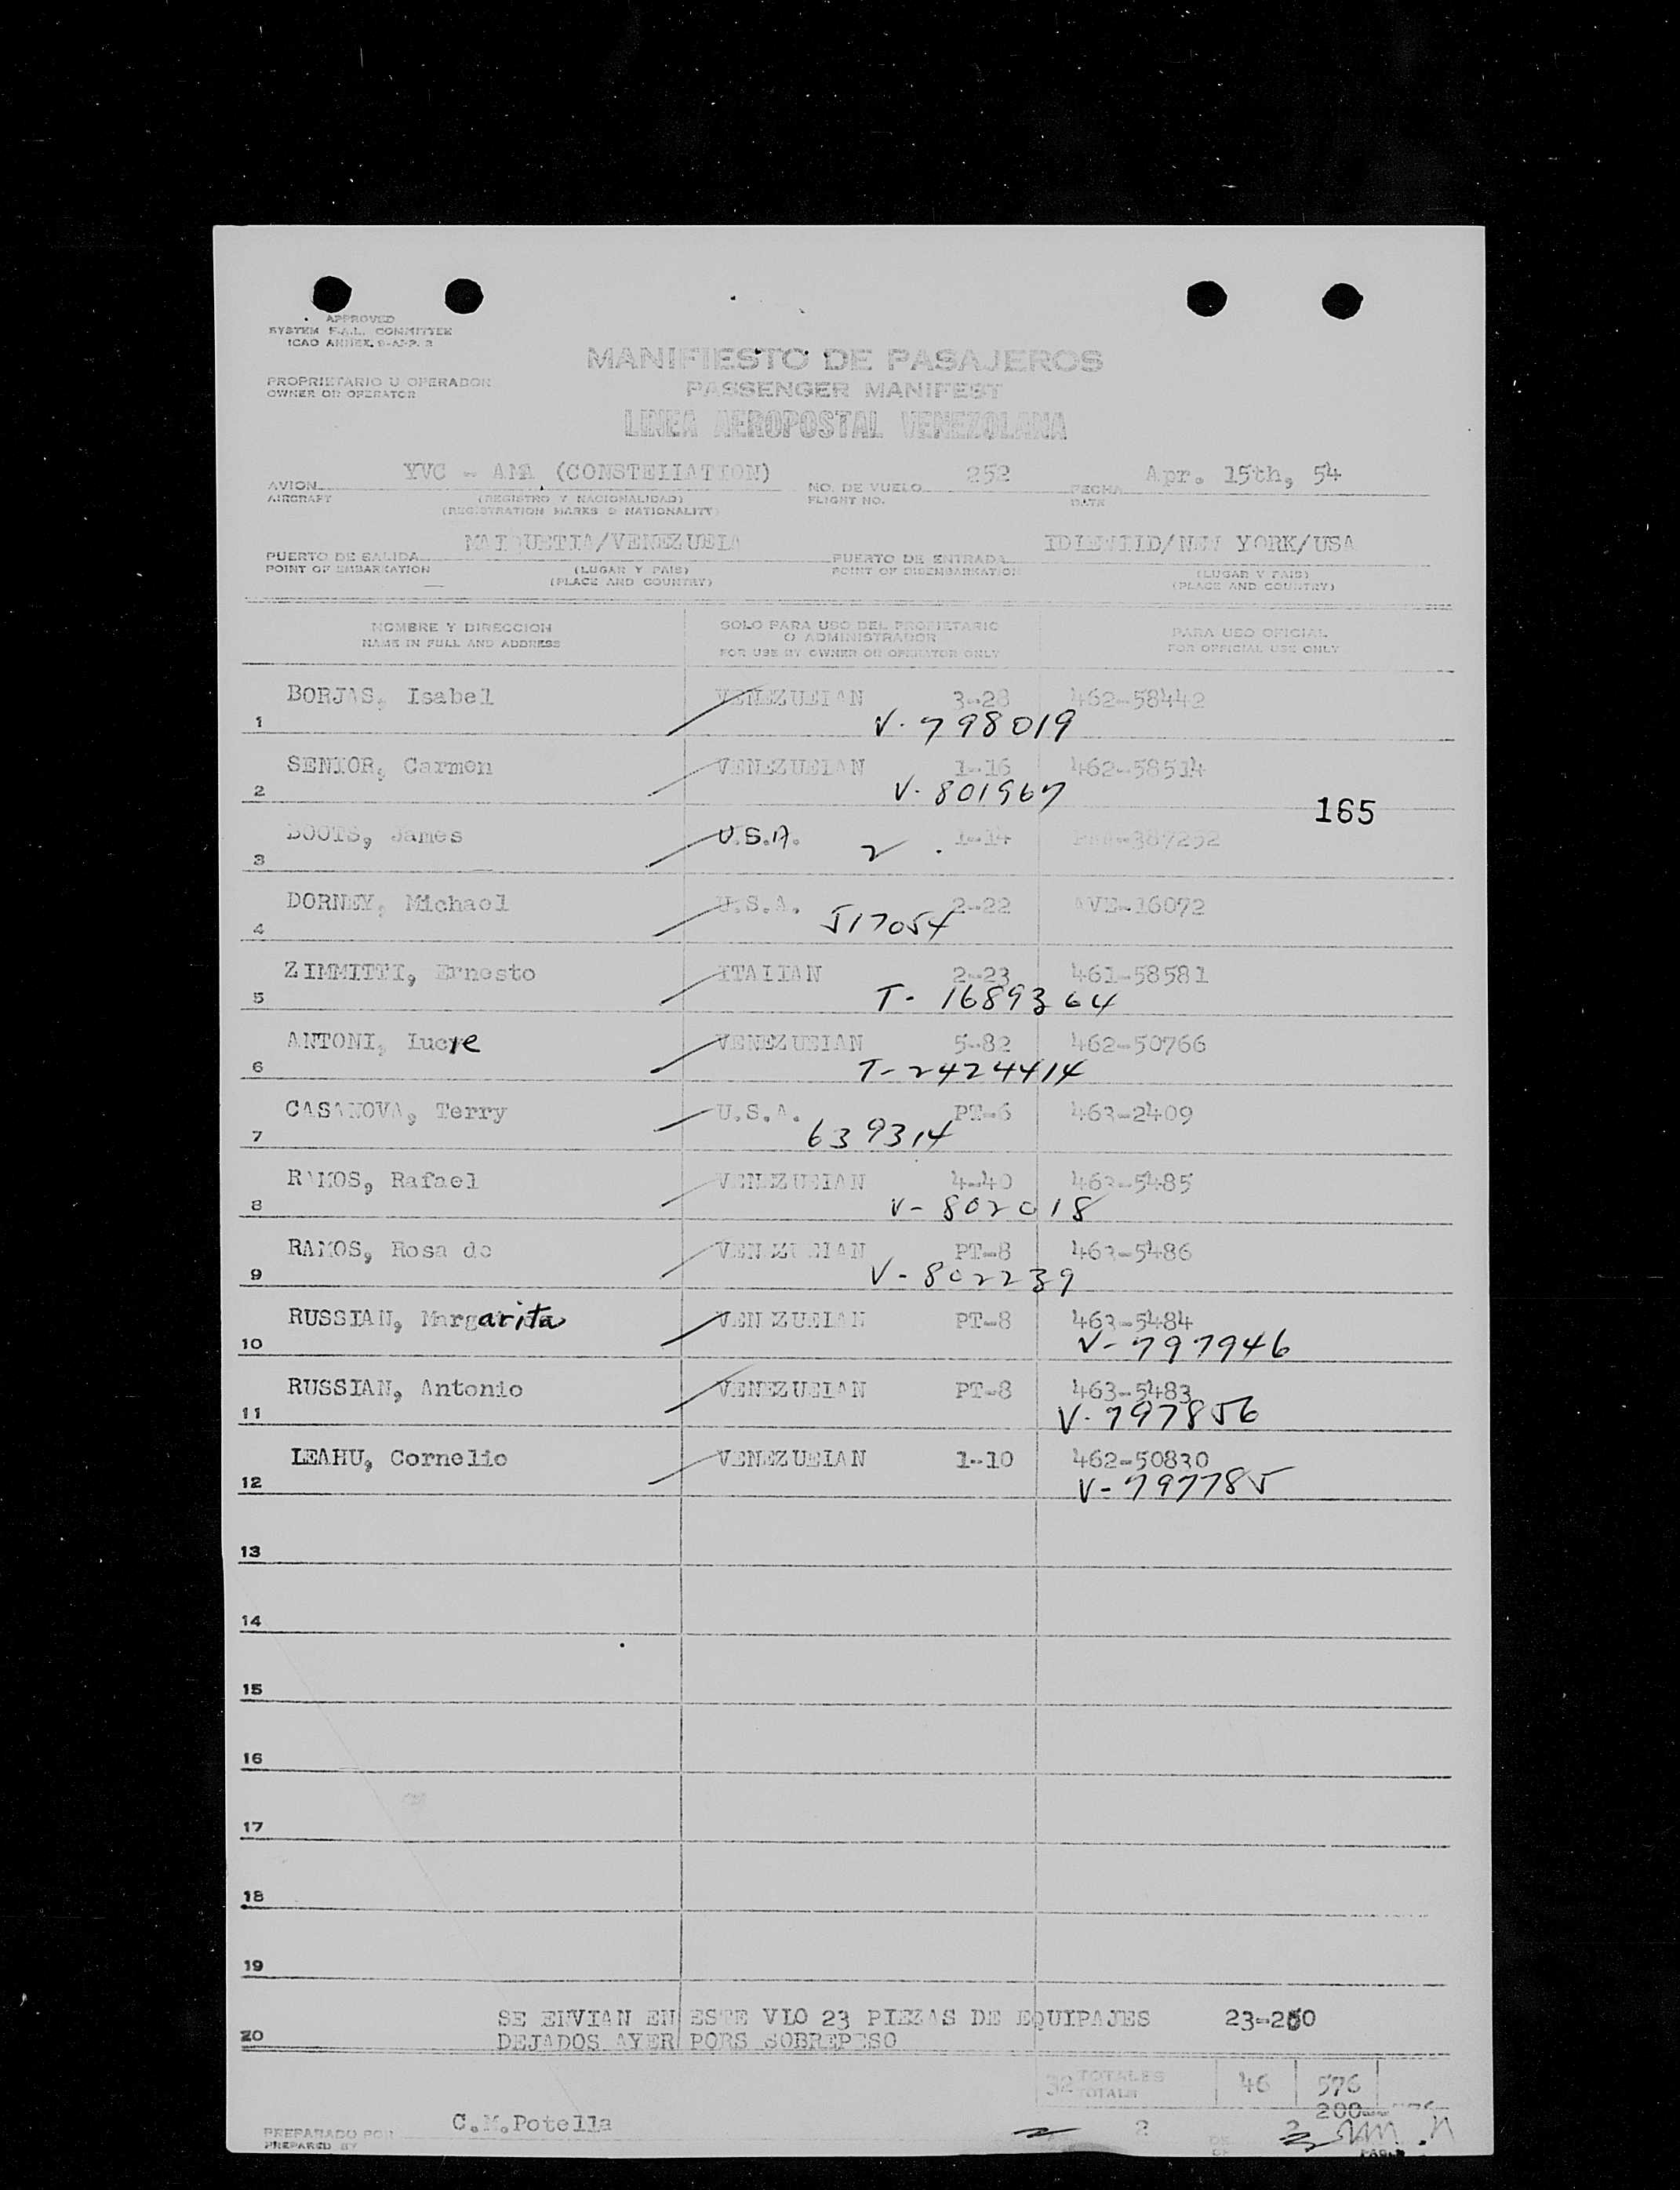 APPROVED
SYSTEM F.A.L. COMMITTEE
ICAO ANNEX. 9-APP. 3
MANIFIESTO DE PASAJEROS
PROPRIETARIO U OPERADOR
OWNER OR OPERATOR
PASSENGER MANIFEST
LINEA AEROPOSTAL VENEZOLANA
AVION YVC - AMA (CONSTELLATION) NO. DE VUELO 252 FECHA Apr. 15th, 54
AIRCRAFT (REGISTRO Y NACIONALIDAD) FLIGHT NO. DATE
(REGISTRATION MARKS & NATIONALITY)
PUERTO DE SALIDA MAIQUETIA/VENEZUELA PUERTO DE ENTRADA IDLEWILD/NEW YORK/USA
POINT OF EMBARKATION (LUGAR Y PAIS) POINT OF DISEMBARKATION (LUGAR Y PAIS)
(PLACE AND COUNTRY) (PLACE AND COUNTRY)
NOMBRE Y DIRECCION SOLO PARA USO DEL PROPIETARIO O ADMINISTRADOR PARA USO OFICIAL
NAME IN FULL AND ADDRESS FOR USE BY OWNER OR OPERATOR ONLY FOR OFFICIAL USE ONLY
BORJAS, Isabel VENEZUELAN 3-28 462-58442
1 V-798019
SENIOR, Carmen VENEZUELAN 1-16 462-58514
2 V-801967
165
BOOTS, James U.S.A. 1-14 387252
3
DORNEY, Michael U.S.A. 2-22 AVE-16072
4 517054
ZIMMITTI, Ernesto ITALIAN 2-23 461-58581
5 T-1689364
ANTONI, Lucye VENEZUELAN 5-82 462-50766
6 T-2424414
CASANOVA, Terry U.S.A. PT-6 463-2409
7 639314
RAMOS, Rafael VENEZUELAN 4-40 463-5485
8 V-802018
RAMOS, Rosa de VENEZUELAN PT-8 463-5486
9 V-802239
RUSSIAN, Margarita VENEZUELAN PT-8 463-5484
10 V-797946
RUSSIAN, Antonio VENEZUELAN PT-8 463-5483
11 V-797856
LEAHU, Cornelio VENEZUELAN 1-10 462-50830
12 V-797785
13
14
15
16
17
18
19
SE ENVIAN EN ESTE VLO 23 PIEZAS DE EQUIPAJES 23-260
20 DEJADOS AYER PORS SOBREPESO
32 TOTALES 46 576
TOTALS
200
PREPARADO POR C.M.Potella 2 DE
PREPARED BY OF